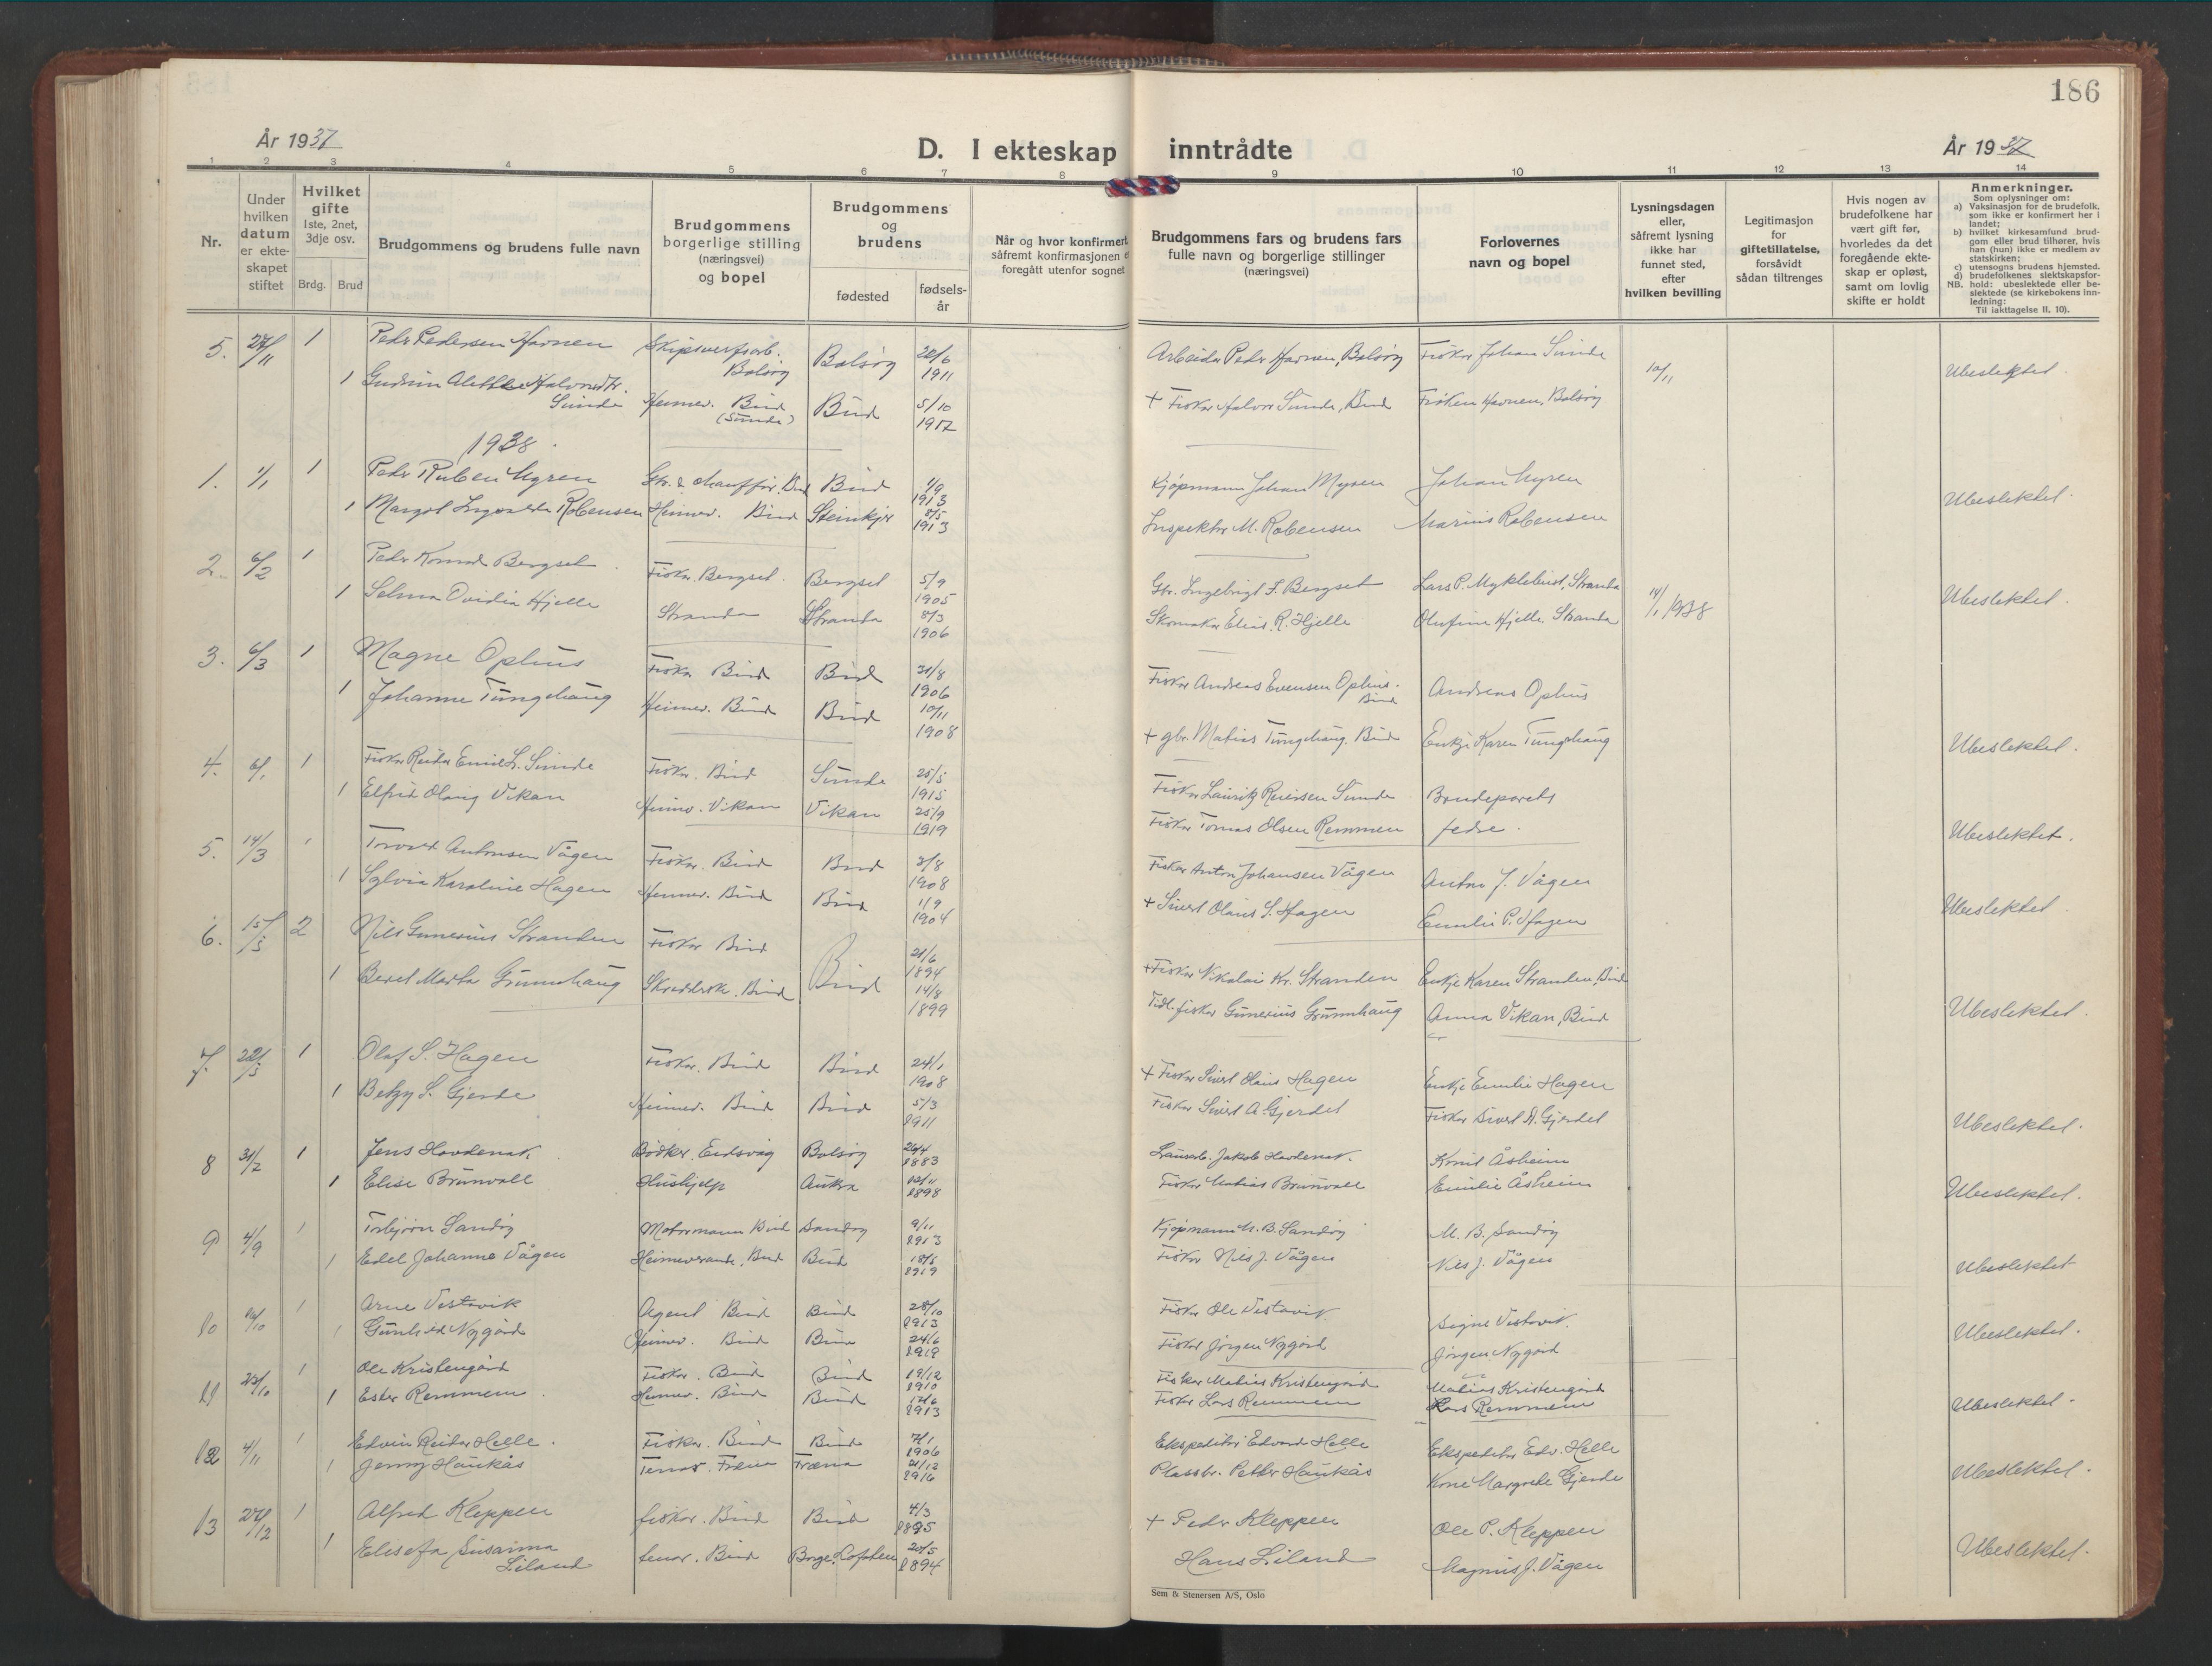 186
År 1937
D. I ekteskap inntrådte
År 1937
1 2 3 4 5 6 7 8 9 10 11 12 13 14
Nr.
Under hvilken datum er ekteskapet stiftet
Hvilket gifte
1ste, 2net, 3dje osv.
Brdg. Brud
Brudgommens og brudens fulle navn
Brudgommens borgerlige stilling (næringsvei) og bopel
Brudgommens og brudens
fødested
fødselsår
Når og hvor konfirmert
såfremt konfirmasjonen
foregått utenfor sognet
Brudgommens fars og brudens fars
fulle navn og borgerlige stillinger
(næringsvei)
Forlovernes
navn og bopel
Lysningsdagen
eller,
såfremt lysning
ikke har
funnet sted,
efter
hvilken bevilling
Legitimasjon
for
giftetillatelse,
forsåvidt
sådan tiltrenges
Hvis nogen av
brudefolkene har
vært gift før,
hvorledes da det
foregående ekte-
skap er opløst,
samt om lovlig
skifte er holdt
Anmerkninger.
Som oplysninger om:
a) Vaksinasjon for de brudefolk, som ikke er konfirmert her i landet;
b) hvilket kirkesamfund brudgom eller brud tilhører, hvis han (hun) ikke er medlem av statskirken;
c) utensogns brudens hjemsted.
d) brudefolkenes slektskapsforhold: ubeslektede eller beslektede (se kirkebokens Innledning:
NB.
Til iakttagelse II, 10).
5. 27/11 1 Peder Pedersen Havnen Skipsverftsarb. Bolsøy Bolsøy 1911 Arbeider Peder Havnen, Bolsøy Fisker Johan Sunde 10/11 Ubeslektet.
1 Gudrun Alette Halvorsdtr. Sunde Heimev. Bud (Sunde) Bud 5/10 1917 + Fisker Halvor Sunde, Bud Frøken Havnen, Bolsøy
1938.
1. 1/1 1 Peder Ruben Myren Gbr. & chauffør, Bud Bud 1/9 1913 Kjøpmann Johan Myren Johan Myren Ubeslektet.
1 Margot Ingvalda Robensen Heimev. Bud Steinkjer 8/5 1913 Inspektør M. Robensen Marius Robensen
2. 6/2 1 Peder Konrad Bergset Fisker. Bergset. Bergset 5/9 1905 Gbr. Ingebrigt F. Bergset Lars P. Myklebust, Stranda 14/1 1938 Ubeslektet.
1 Selma Ovidia Hjelle Stranda Stranda 8/3 1906 Skomaker Elias R. Hjelle Olufine Hjelle, Stranda
3. 6/3 1 Magne Ophus Fisker Bud Bud 31/8 1906 Fisker Andreas Evensen Ophus. Bud Andreas Ophus
1 Johanne Tungehaug Heimev. Bud Bud 10/11 1908 + gbr. Matias Tungehaug. Bud Enkje Karen Tungehaug Ubeslektet.
4. 6/1 1 Fisker Reidar Emil L. Sunde Fisker. Bud Sunde 25/5 1915 Fisker Lauritz Reiersen Sunde Brudeparets
1 Elfrid Olaug Vikan Heimev. Vikan Vikan 25/9 1919 Fisker Tomas Olsen Remmen fedre. Ubeslektet.
5. 14/3 1 Torvald Antonsen Vågen Fisker. Bud Bud 3/8 1908 Fisker Anton Johansen Vågen Anton J. Vågen
1 Sylvia Karoline Hagen Heimev. Bud Bud 1/9 1904 + Sivert Olaus S. Hagen Emilie P. Hagen Ubeslektet.
6. 15/5 2 Nils Gunerius Stranden Fisker Bud Bud 21/6 1894 + Fisker Nikolai Kr. Stranden Enkje Karen Stranden, Bud
1 Beret Marta Grunnhaug Skredderk. Bud 14/8 1899 Tidl. fisker Gunerius Grunnhaug Anna Vikan, Bud Ubeslektet.
7. 22/5 1 Olaf S. Hagen Fisker. Bud Bud 24/1 1908 + Fisker Sivert Olaus Hagen Enkje Emilie Hagen
1 Betzy S. Gjerde Heimev. Bud Bud 5/3 1911 Fisker Sivert A. Gjerdet Fisker Sivert A. Gjerdet Ubeslektet.
8 31/7 1 Jens Hovdenak Bødker. Eidsvåg Bolsøy 1883 Jakob Hovdenak. Åsheim
1 Elise Brunvoll Hushjelp Aukra 1898 Fisker Matias Brunvoll Emilie Åsheim Ubeslektet.
9 4/9 1 Torbjørn Sandøy Motormann Bud Sandøy 9/11 1913 Kjøpmann M. B. Sandøy M. B. Sandøy
1 Edel Johanne Vågen Heimeverande, Bud Bud 18/5 1919 Fisker Nils J. Vågen Nils J. Vågen Ubeslektet
10 1 Arne Vestavik Agent Bud Bud 28/10 1913 Fisker Ole Vestavik. Signe Vestavik.
1 Gunhild Nygård Heimev. Bud Bud 24/6 Fisker Jørgen Nygård Jørgen Nygård Ubeslektet.
11 23/10 1 Ole Kristengård Fisker. Bud Bud 19/12 1910 Fisker Matias Kristengård Matias Kristengård
1 Ester Remmem. Heimev. Bud Bud 1913 Fisker Lars Remmem Lars Remmem Ubeslektet.
12 4/11 1 Edvin Reidar Helle. Fisker. Bud Bud 7/1 1906 Ekspeditør Edvard Helle Ekspeditør Edv. Helle
1 Jenny Haukås Tenar. Fræna Fræna 1916 Plassbr. Petter Haukås Margrete Gjerde Ubeslektet.
13 27/12 1 Alfred Kleppen fisker. Bud Bud 4/3 1895 + Peder Kleppen Ole P. Kleppen
1 Elisefa Susanna Liland tenar. Bud Borge. Lofoten 20/5 1894 Hans Liland Magnus J. Vågen Ubeslektet.
Sem & Stenersen A/S, Oslo